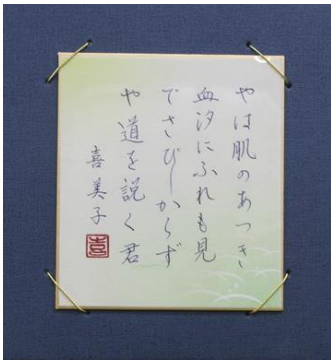 やは肌のあつき
血汐にふれも見
でさびしからず
や道を説く君
喜美子
喜